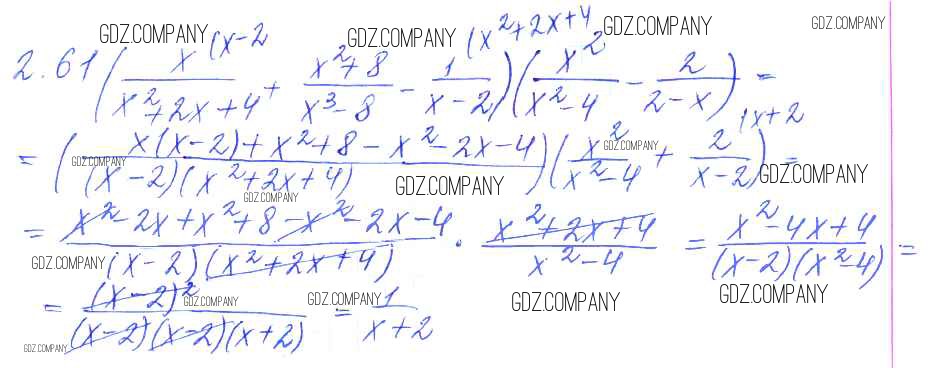 GDZ.COMPANY GDZ.COMPANY GDZ.COMPANY GDZ.COMPANY
2.61 (x/(x²+2x+4) (x-2 + (x²+8)/(x³-8) - 1/(x-2) (x²+2x+4)(x²/(x²-4) - 2/(2-x)) =
= ((x(x-2)+x²+8-x²-2x-4)/((x-2)(x²+2x+4)))(x²/(x²-4) + 2/(x-2) (x+2) =
GDZ.COMPANY GDZ.COMPANY GDZ.COMPANY GDZ.COMPANY GDZ.COMPANY
= (x²-2x+x²+8-x²-2x-4)/((x-2)(x²+2x+4)) · (x²+2x+4)/(x²-4) = (x²-4x+4)/((x-2)(x²-4)) =
GDZ.COMPANY
= (x-2)²/((x-2)(x-2)(x+2)) = 1/(x+2)
GDZ.COMPANY GDZ.COMPANY GDZ.COMPANY GDZ.COMPANY
GDZ.COMPANY